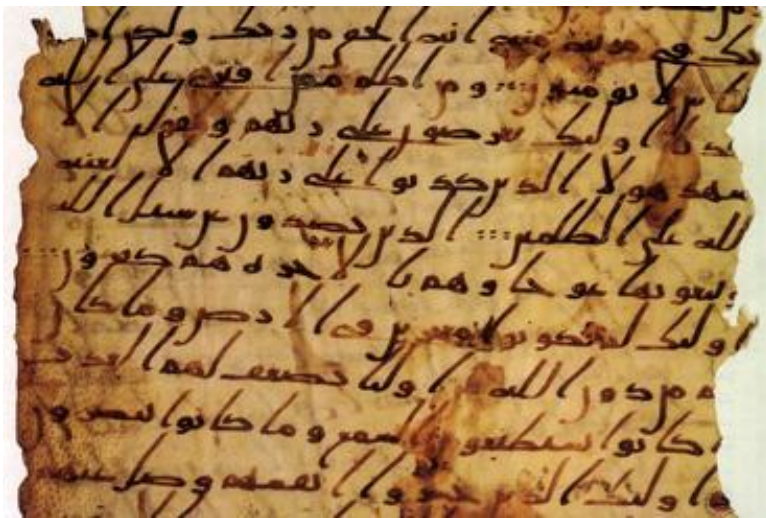 تك في مرية منه انه الحق من ربك ولكن ا
س لا يومنون ومن اظلم ممن افترى على الله
كذبا اولئك يعرضون على ربهم ويقول الا
شهد هولا الذين كذبوا على ربهم الا لعنة
الله على الظلمين الذين يصدون عن سبيل الله
ويبغونها عوجا وهم بالاخرة هم كفرون
اولئك لم يكونوا معجزين في الارض وما كان
هم من دون الله من اوليا يضعف لهم العذب
ما كانوا يستطيعون السمع وما كانوا يبصرون
اولئك الذين خسروا انفسهم وضل عنهم